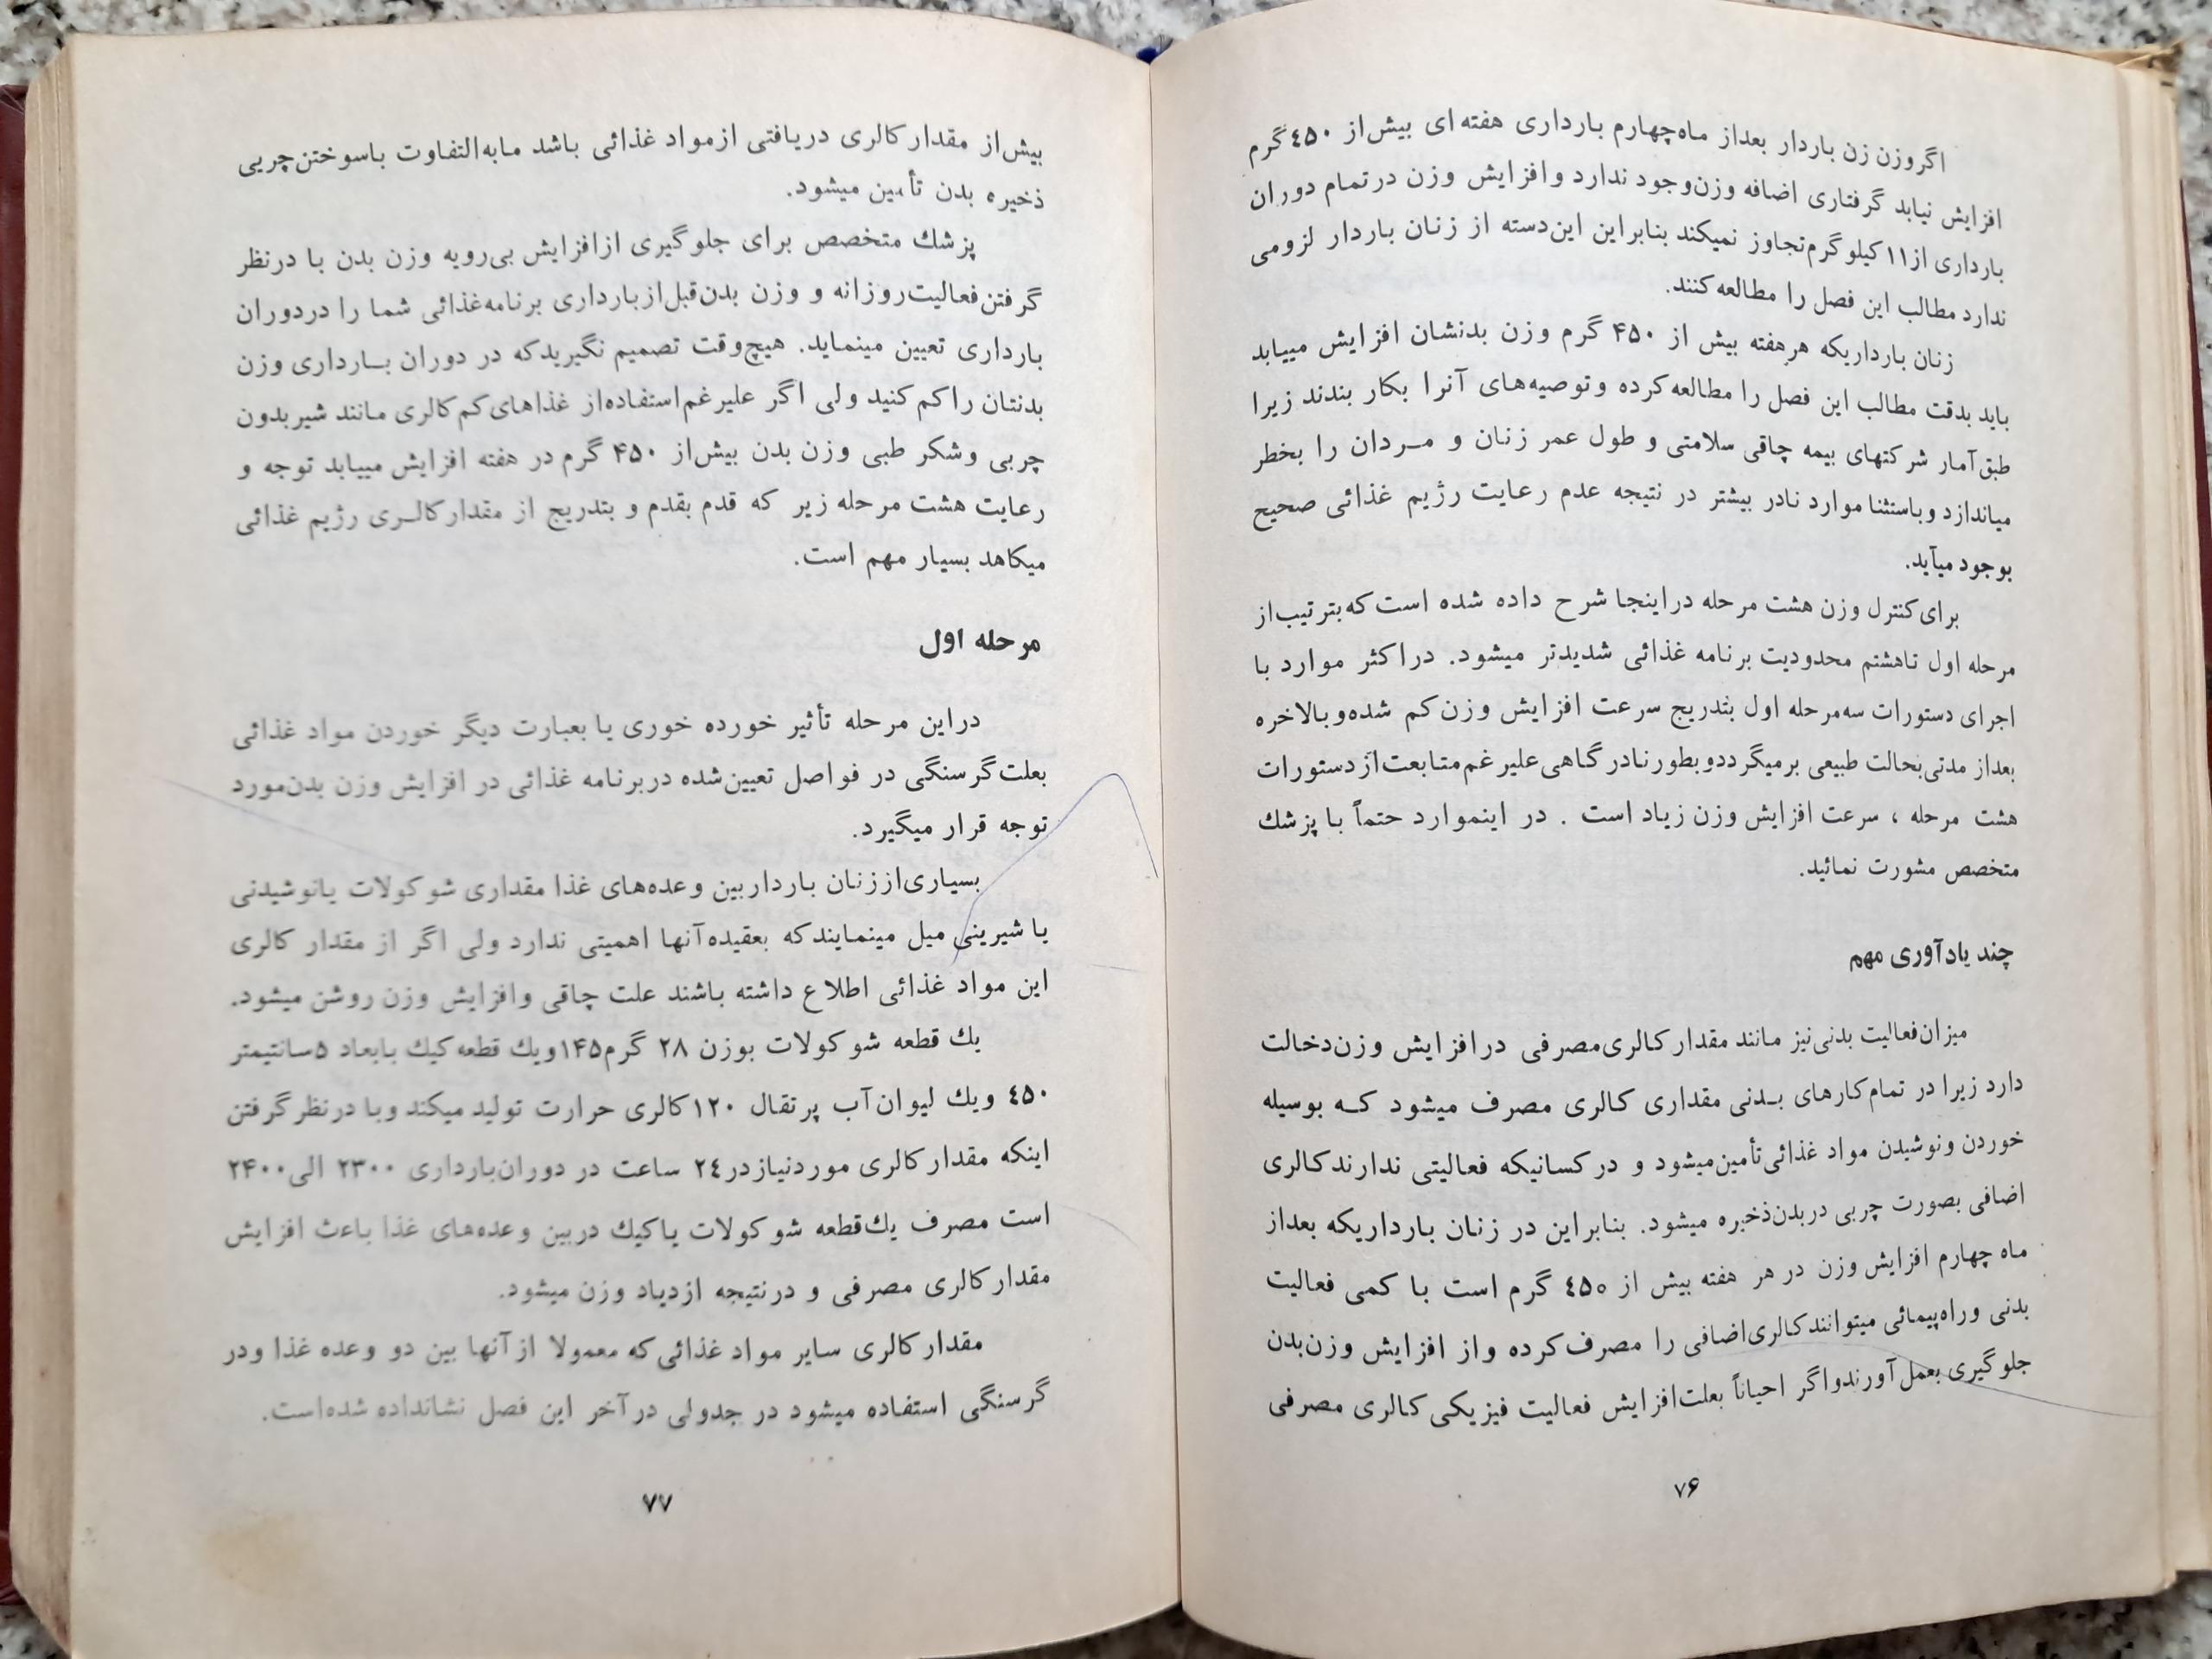 اگر وزن زن باردار بعداز ماه‌چهارم بارداری هفته‌ای بیش‌از ٤۵۰ گرم
افزایش نیابد گرفتاری اضافه وزن‌وجود ندارد و افزایش وزن در تمام دوران
بارداری از ۱۱ کیلوگرم‌تجاوز نمیکند بنابراین این‌دسته از زنان باردار لزومی
ندارد مطالب این فصل را مطالعه‌کنند.
زنان بارداریکه هرهفته بیش از ۴۵۰ گرم وزن بدنشان افزایش مییابد
باید بدقت مطالب این فصل را مطالعه‌کرده و توصیه‌های آنرا بکار بندند زیرا
طبق‌آمار شرکتهای بیمه چاقی سلامتی و طول عمر زنان و مــردان را بخطر
میاندازد و باستثنا موارد نادر بیشتر در نتیجه عدم رعایت رژیم غذائی صحیح
بوجود میآید.
برای‌کنترل وزن هشت مرحله دراینجا شرح داده شده است‌که‌بترتیب‌از
مرحله اول تاهشتم محدودیت برنامه غذائی شدیدتر میشود. دراکثر موارد با
اجرای دستورات سه‌مرحله اول بتدریج سرعت افزایش وزن‌کم شده‌و بالاخره
بعداز مدتی‌بحالت طبیعی برمیگرددو بطورنادر گاهی‌علیرغم‌متابعت‌از دستورات
هشت مرحله ، سرعت افزایش وزن زیاد است . در اینموارد حتماً با پزشك
متخصص مشورت نمائید.
چند یادآوری مهم
میزان‌فعالیت بدنی‌نیز مانند مقدار کالری‌مصرفی درافزایش وزن‌دخالت
دارد زیرا در تمام‌کارهای بــدنی مقداری کالری مصرف میشود کــه بوسیله
خوردن ونوشیدن مواد غذائی‌تأمین‌میشود و در کسانیکه فعالیتی ندارند کالری
اضافی بصورت چربی دربدن‌ذخیره میشود. بنابراین در زنان بارداریکه بعداز
ماه چهارم افزایش وزن در هر هفته بیش از ٤۵۰ گرم است با کمی فعالیت
بدنی وراه‌پیمائی میتوانند کالری‌اضافی را مصرف‌کرده واز افزایش وزن‌بدن
جلوگیری بعمل‌آورندواگر احیاناً بعلت‌افزایش فعالیت فیزیکی کالری مصرفی
۷۶
بیش‌از مقدار کالری دریافتی ازمواد غذائی باشد مابه‌التفاوت باسوختن‌چربی
ذخیره بدن تأمین میشود.
پزشك متخصص برای جلوگیری ازافزایش بی‌رویه وزن بدن با درنظر
گرفتن‌فعالیت‌روزانه و وزن بدن‌قبل‌ازبارداری برنامه‌غذائی شما را دردوران
بارداری تعیین مینماید. هیچ‌وقت تصمیم نگیریدکه در دوران بــارداری وزن
بدنتان راکم کنید ولی اگر علیرغم‌استفاده‌از غذاهای‌کم‌کالری مانند شیربدون
چربی وشکر طبی وزن بدن بیش‌از ۴۵۰ گرم در هفته افزایش مییابد توجه و
رعایت هشت مرحله زیر که قدم بقدم و بتدریج از مقدارکالــری رژیم غذائی
میکاهد بسیار مهم است.
مرحله اول
دراین مرحله تأثیر خورده خوری یا بعبارت دیگر خوردن مواد غذائی
بعلت‌گرسنگی در فواصل تعیین‌شده دربرنامه غذائی در افزایش وزن بدن‌مورد
توجه قرار میگیرد.
بسیاری‌اززنان بارداربین وعده‌های غذا مقداری شوکولات یانوشیدنی
یا شیرینی میل مینمایندکه بعقیده‌آنها اهمیتی ندارد ولی اگر از مقدار کالری
این مواد غذائی اطلاع داشته باشند علت چاقی وافزایش وزن روشن میشود.
یك قطعه شوکولات بوزن ۲۸ گرم۱۴۵ویك قطعه‌کیك بابعاد ۵سانتیمتر
٤۵۰ ویك لیوان‌آب پرتقال ۱۲۰کالری حرارت تولید میکند وبا درنظرگرفتن
اینکه مقدارکالری موردنیازدر۲٤ ساعت در دوران‌بارداری ۲۳۰۰ الی۲۴۰۰
است مصرف یك‌قطعه شوکولات یاکیك دربین وعده‌های غذا باعث افزایش
مقدارکالری مصرفی و درنتیجه ازدیاد وزن میشود.
مقدارکالری سایر مواد غذائی‌که معمولا ازآنها بین دو وعده غذا ودر
گرسنگی استفاده میشود در جدولی درآخر این فصل نشانداده شده‌است.
۷۷